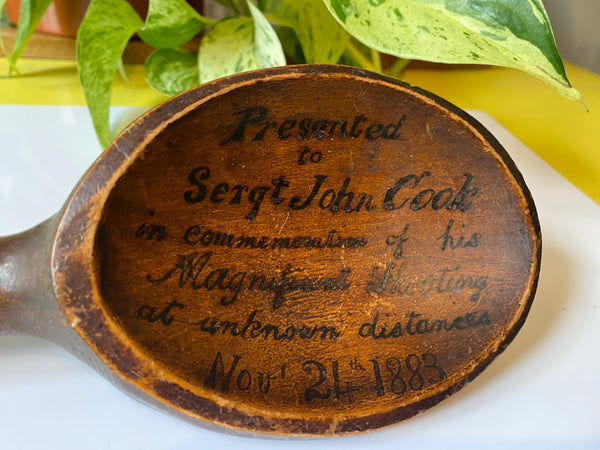 Presented
to
Sergt John Cook
in commemoration of his
Magnificent Shooting
at unknown distances
Novr 24th 1883